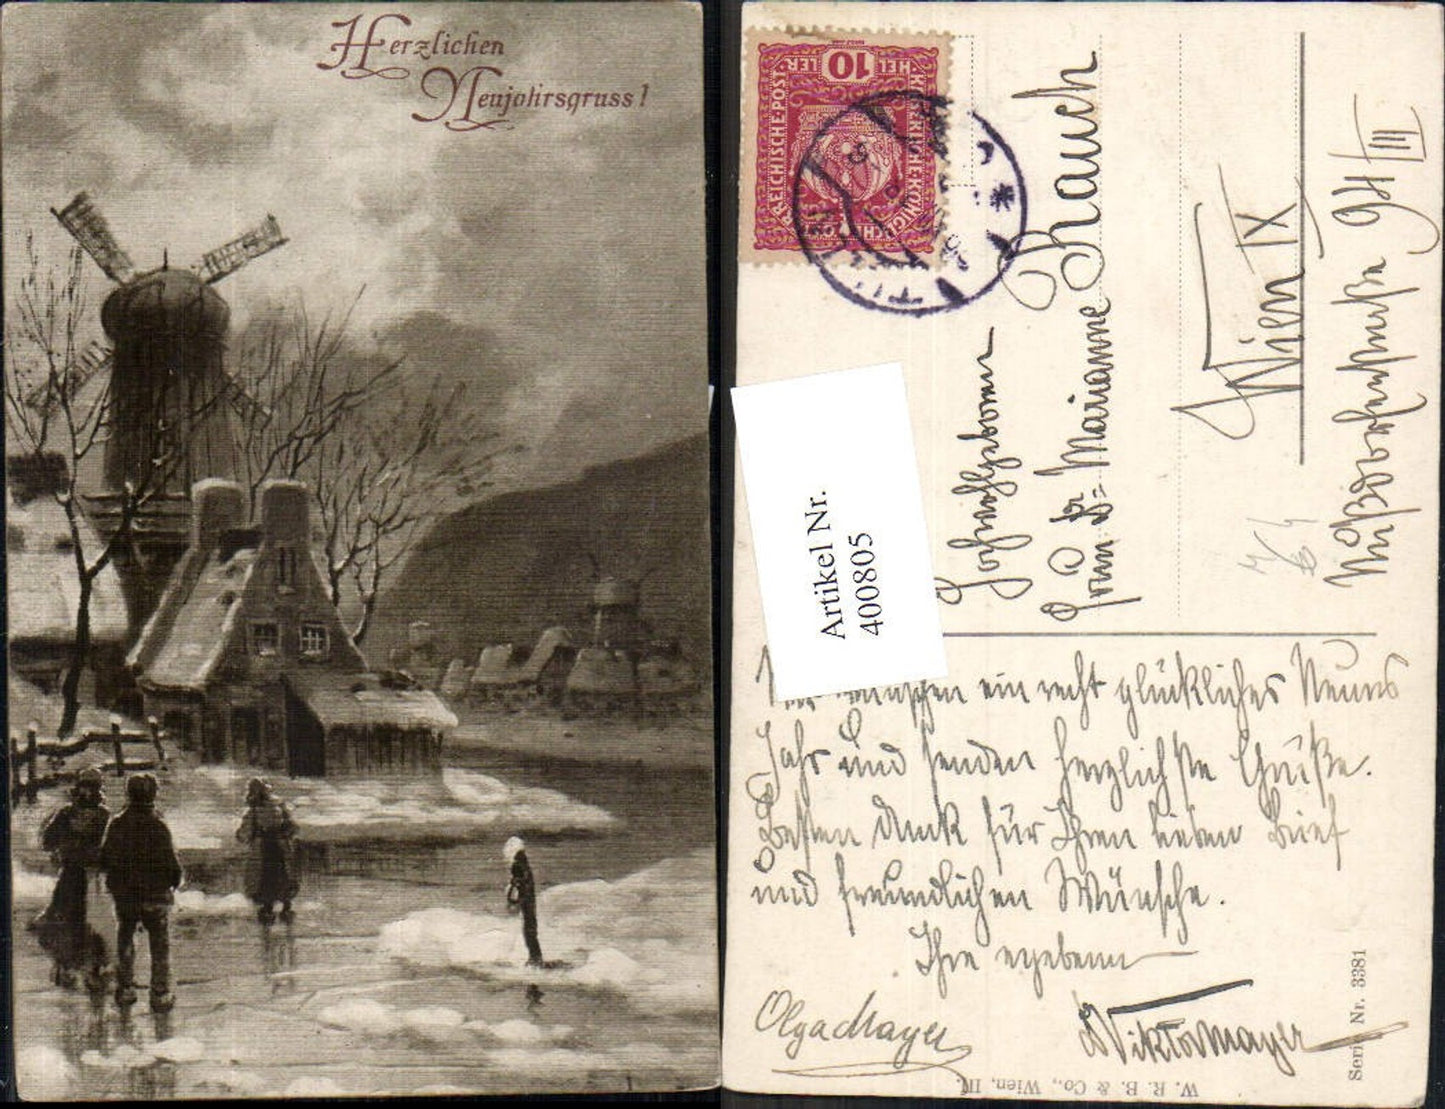 Herzlichen
Neujahrsgruss!
10
HEL LER
KAISERLICHE·KÖNIGLICHE ÖSTERREICHISCHE·POST
TULLN
Artikel Nr.
400805
Hochwohlgeboren
Frau Dr. Marianne Rauch
Wien IX
Nußdorferstraße 94/III
Wir wünschen ein recht glückliches Neues
Jahr und senden herzlichste Grüße.
Besten Dank für Ihren lieben Brief
und freundlichen Wünsche.
Ihre ergebenen
Olga Mayer
Viktor Mayer
W. R. B. & Co., Wien, III.
Serie Nr. 3381